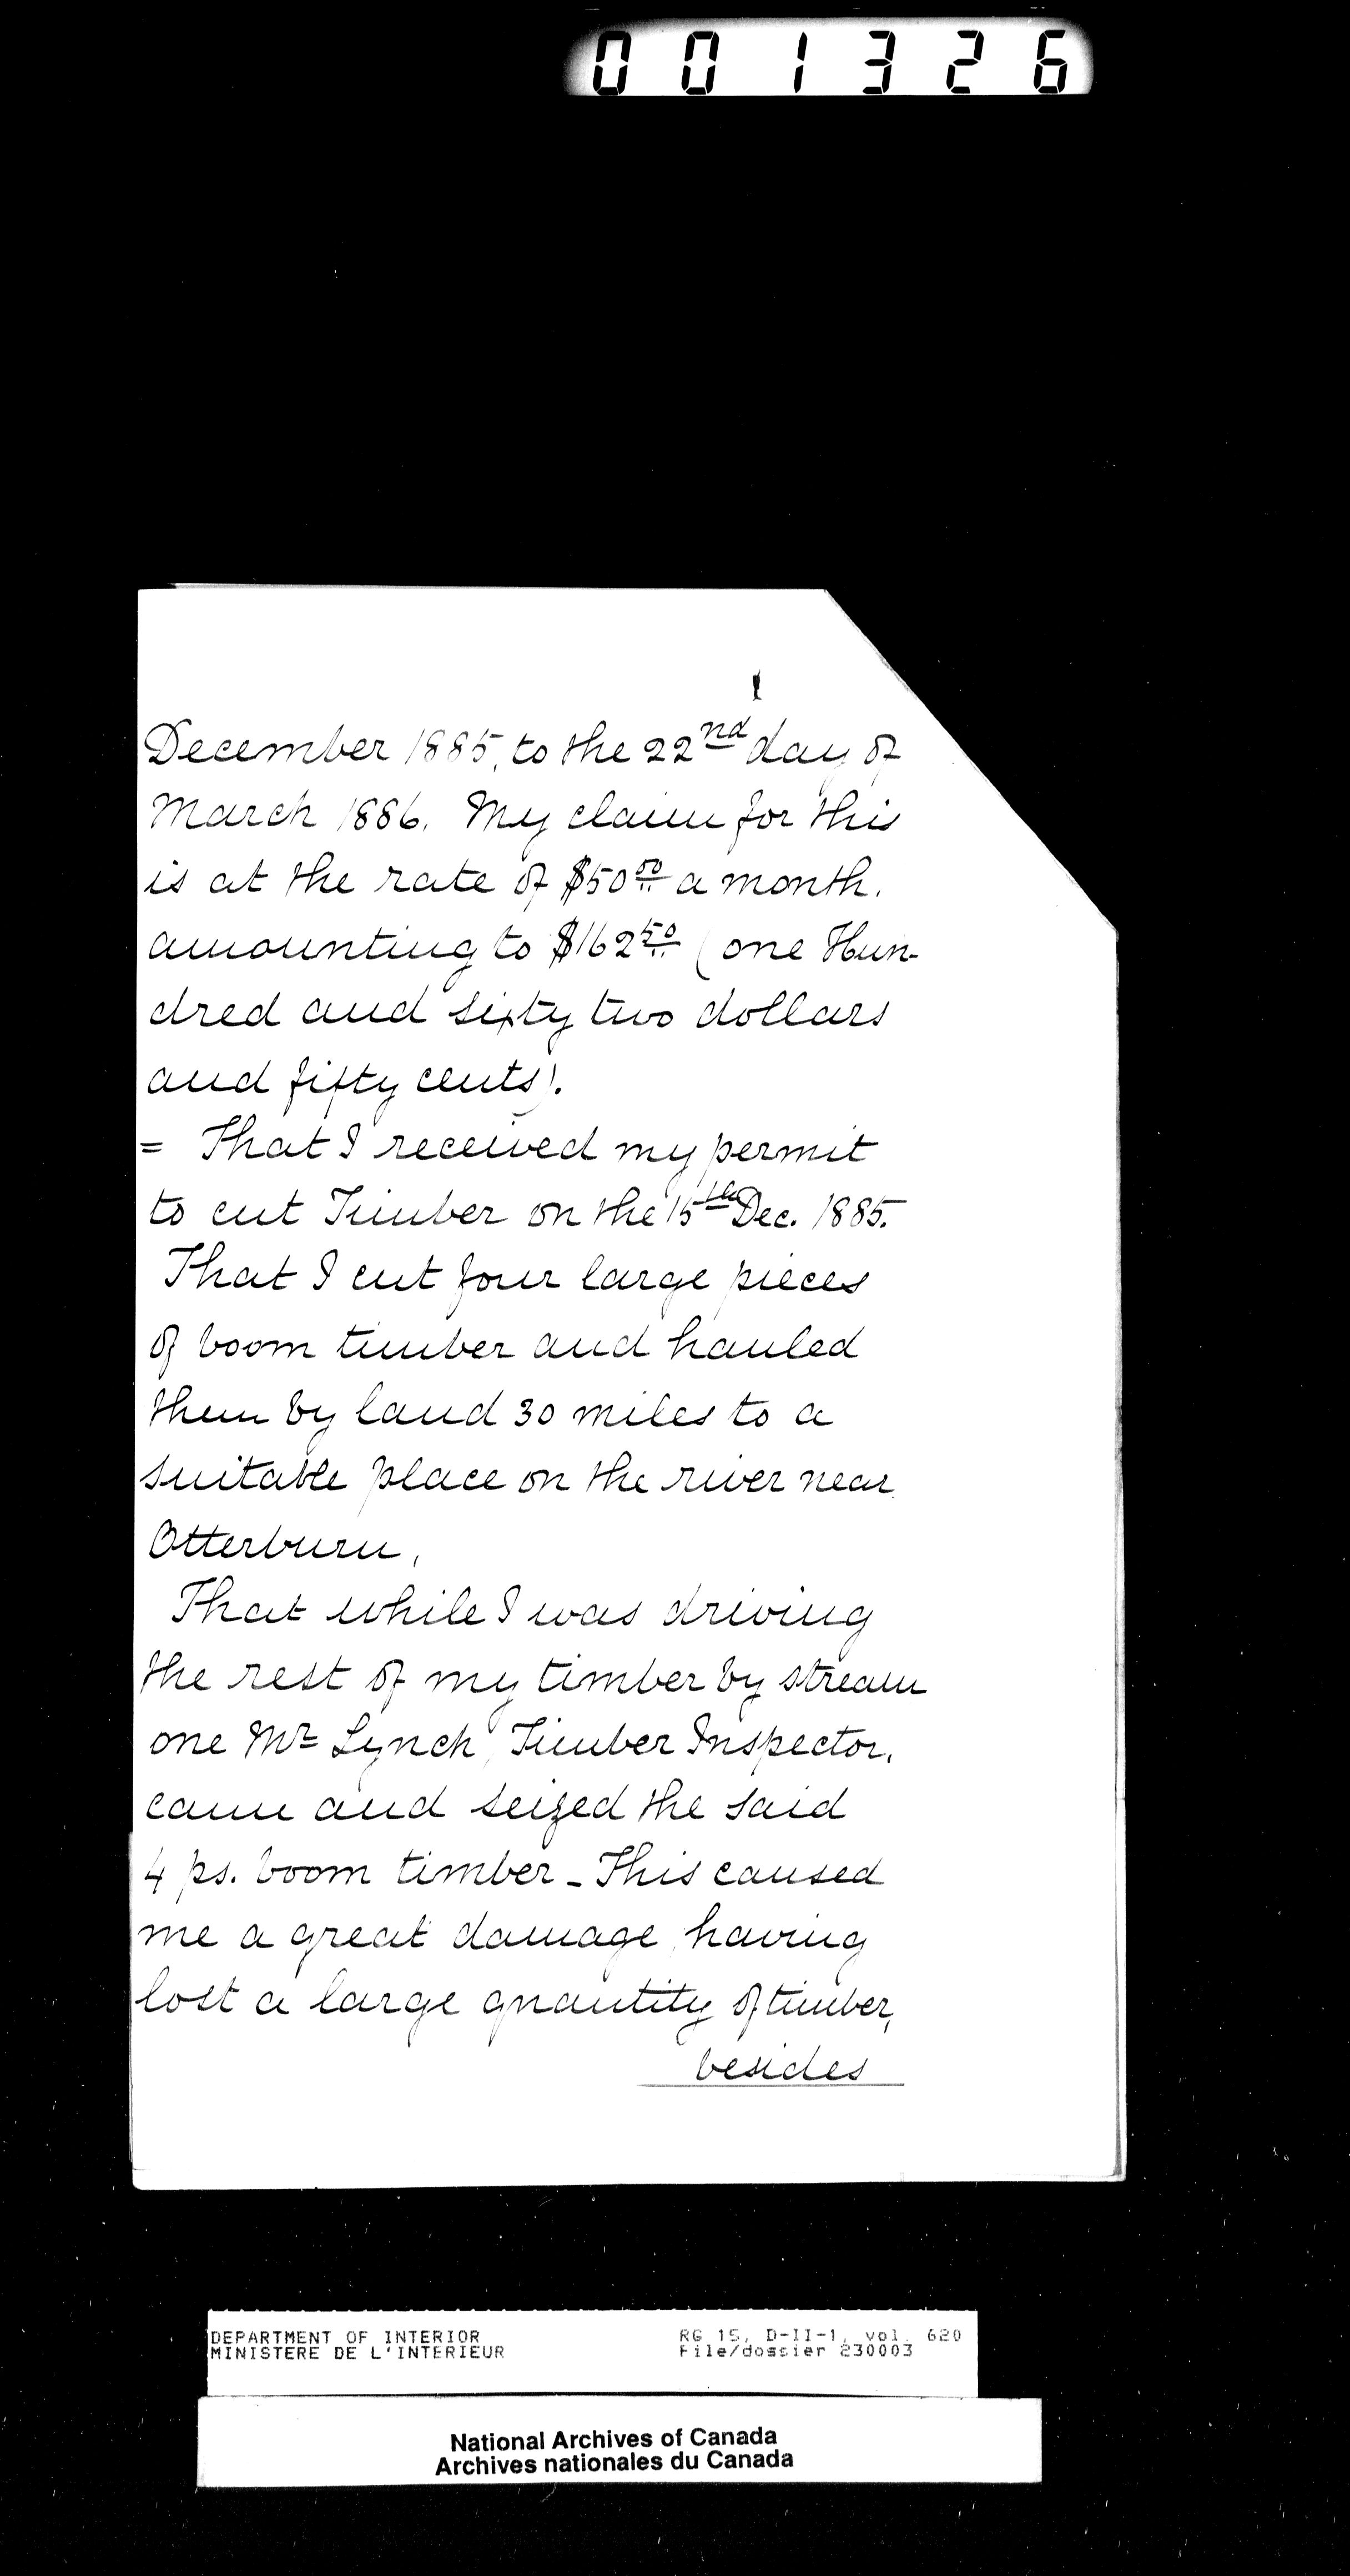 001326
December 1885, to the 22nd day of
March 1886. My claim for this
is at the rate of $50.00 a month.
amounting to $162.50 (one Hun-
dred and sixty two dollars
and fifty cents).
= That I received my permit
to cut Timber on the 15th Dec. 1885.
That I cut four large pieces
of boom timber and hauled
them by land 30 miles to a
suitable place on the river near
Otterburn,
That while I was driving
the rest of my timber by stream
one Mr Lynch, Timber Inspector,
came and seized the said
4 ps. boom timber - This caused
me a great damage, having
lost a large quantity of timber,
besides
DEPARTMENT OF INTERIOR RG 15, D-II-1, vol. 620
MINISTERE DE L'INTERIEUR File/dossier 230003
National Archives of Canada
Archives nationales du Canada